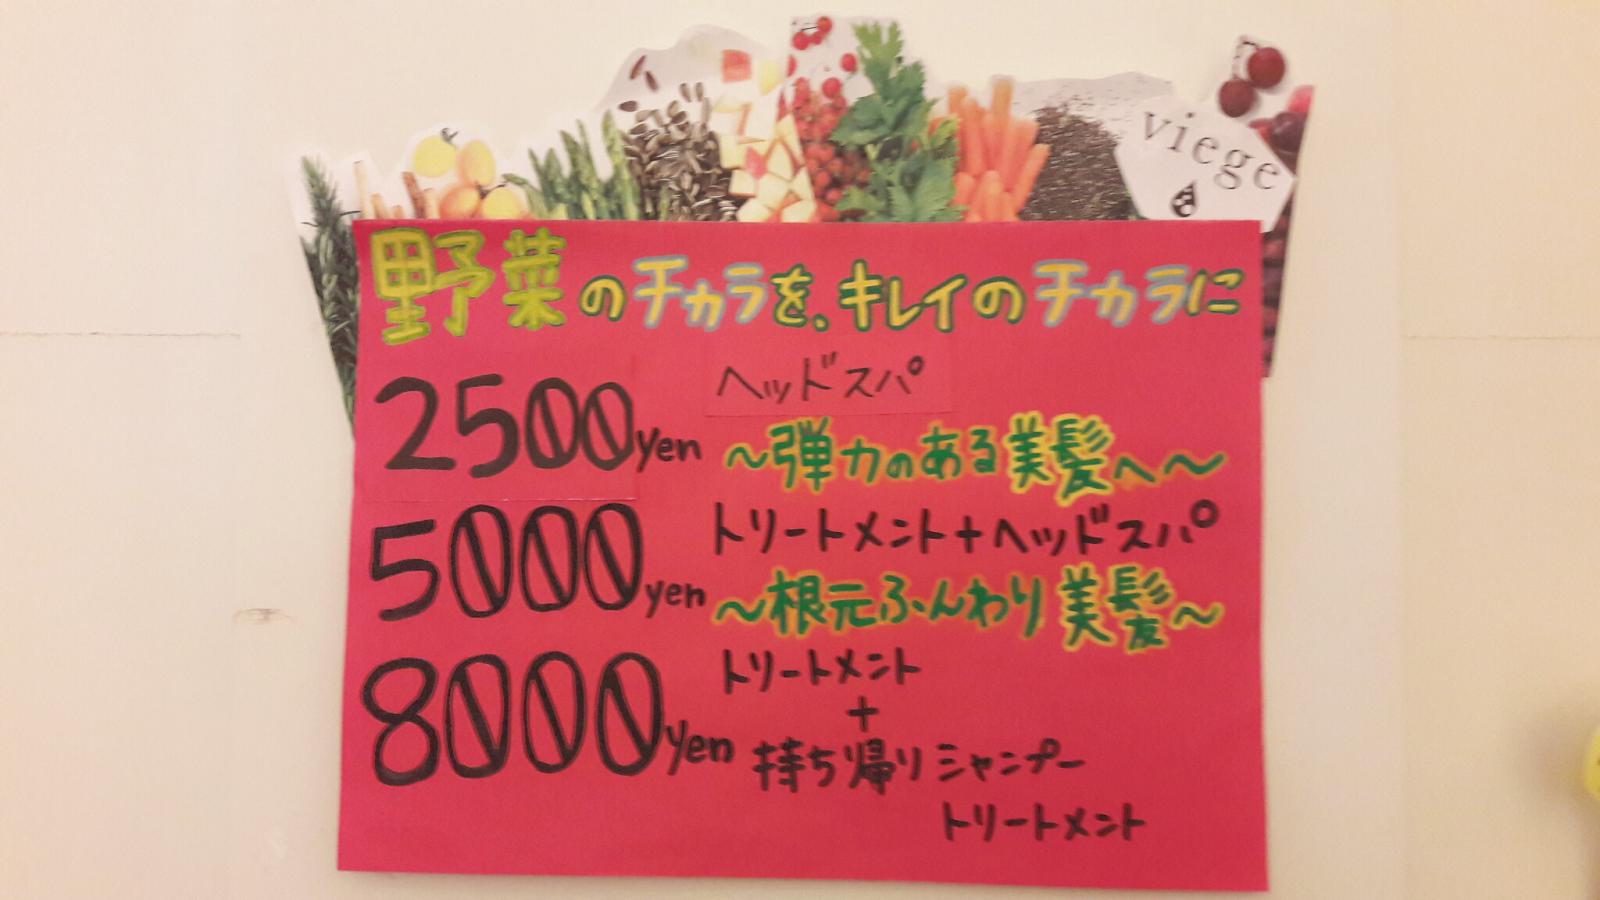 viege
野菜のチカラを、キレイのチカラに
2500yen ヘッドスパ
～弾力のある美髪へ～
5000yen トリートメント+ヘッドスパ
～根元ふんわり美髪～
8000yen トリートメント
+
持ち帰りシャンプー
トリートメント